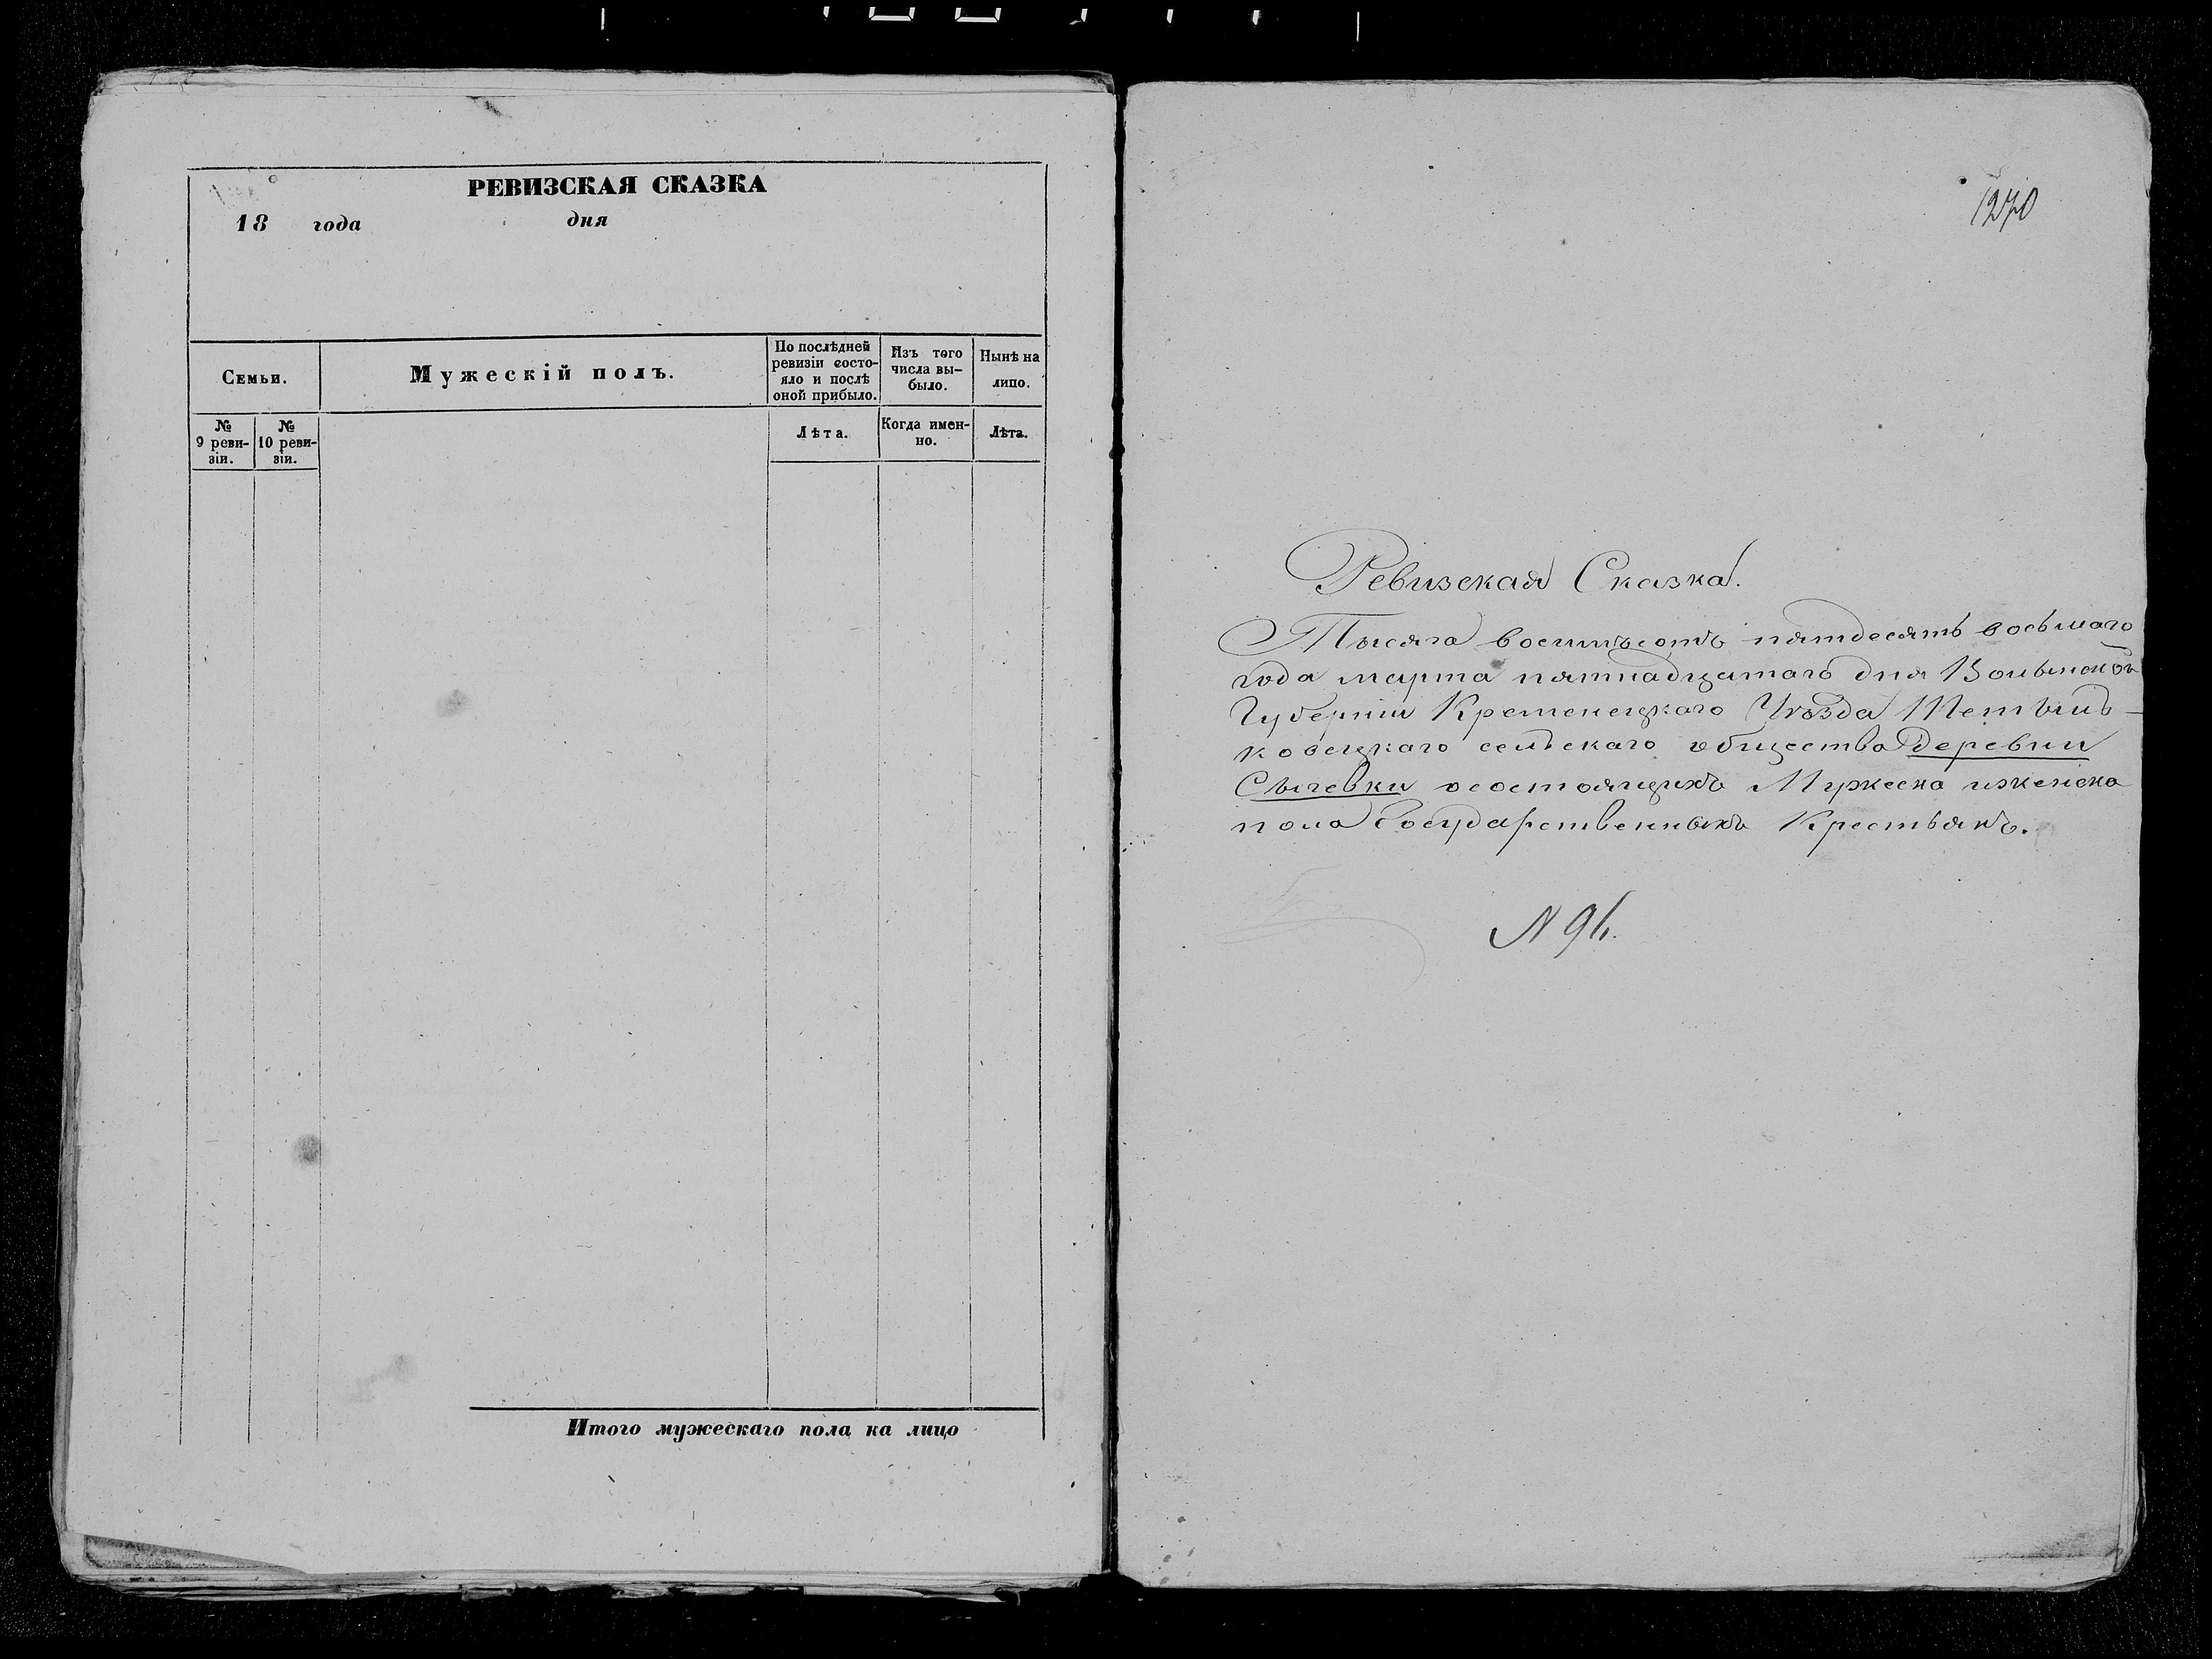 РЕВИЗСКАЯ СКАЗКА
18 года дня
Семьи.
Мужескій полъ.
По послѣдней
ревизіи состо-
яло и послѣ
оной прибыло.
Изъ того
числа вы-
было.
Нынѣ на
лицо.
№
9 реви-
зіи.
№
10 реви-
зіи.
Лѣта.
Когда имен-
но.
Лѣта.
Итого мужескаго пола на лицо
1270
Ревизская Сказка.
Тысяча восимъсотъ пятдесять восьмаго
года марта пятнадцатаго дня Волынской
Губерніи Кременецкаго Уѣзда
ковецкаго сельскаго общества деревни
Сычевки осостоящихъ Мужеска иженска
пола Государственныхъ Крестьянъ.